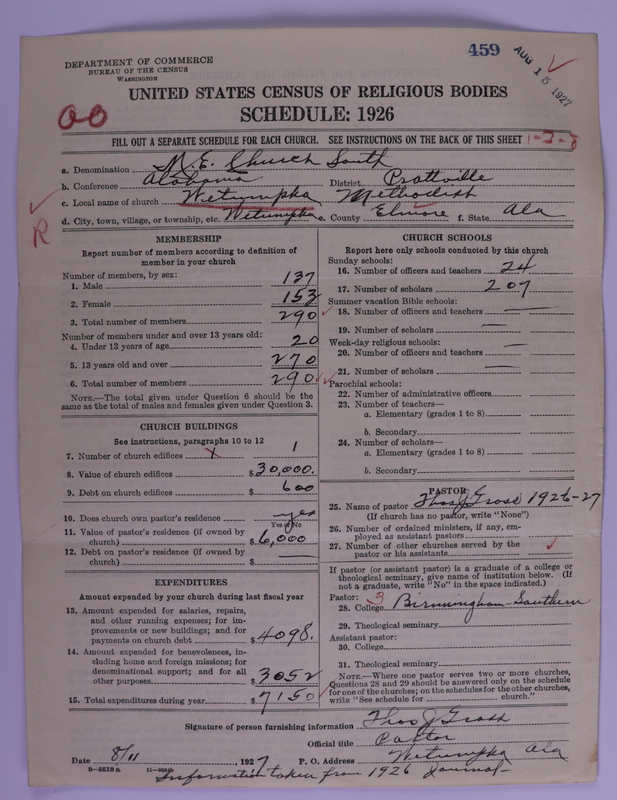 DEPARTMENT OF COMMERCE
BUREAU OF THE CENSUS
WASHINGTON
459
AUG 15 1927
UNITED STATES CENSUS OF RELIGIOUS BODIES
SCHEDULE: 1926
FILL OUT A SEPARATE SCHEDULE FOR EACH CHURCH. SEE INSTRUCTIONS ON THE BACK OF THIS SHEET
a. Denomination M.E. Church South
b. Conference Alabama District Prattville
c. Local name of church Wetumpka Methodist
d. City, town, village, or township, etc. Wetumpka e. County Elmore f. State Ala
R
MEMBERSHIP
Report number of members according to definition of
member in your church
Number of members, by sex:
1. Male 137
2. Female 153
3. Total number of members 290
Number of members under and over 13 years old:
4. Under 13 years of age 20
5. 13 years old and over 270
6. Total number of members 290
NOTE.—The total given under Question 6 should be the
same as the total of males and females given under Question 3.
CHURCH BUILDINGS
See instructions, paragraphs 10 to 12
7. Number of church edifices 1
8. Value of church edifices $30,000.
9. Debt on church edifices $ 600
10. Does church own pastor's residence yes
Yes or No
11. Value of pastor's residence (if owned by
church) $6,000
12. Debt on pastor's residence (if owned by
church) $
EXPENDITURES
Amount expended by your church during last fiscal year
13. Amount expended for salaries, repairs,
and other running expenses; for im-
provements or new buildings; and for
payments on church debt $4098.
14. Amount expended for benevolences, in-
cluding home and foreign missions; for
denominational support; and for all
other purposes $3052
15. Total expenditures during year $7150
CHURCH SCHOOLS
Report here only schools conducted by this church
Sunday schools:
16. Number of officers and teachers 24
17. Number of scholars 207
Summer vacation Bible schools:
18. Number of officers and teachers —
19. Number of scholars —
Week-day religious schools:
20. Number of officers and teachers —
21. Number of scholars —
Parochial schools:
22. Number of administrative officers
23. Number of teachers—
a. Elementary (grades 1 to 8)
b. Secondary
24. Number of scholars—
a. Elementary (grades 1 to 8)
b. Secondary
PASTOR
25. Name of pastor Thos J Gross 1926-27
(If church has no pastor, write "None")
26. Number of ordained ministers, if any, em-
ployed as assistant pastors
27. Number of other churches served by the
pastor or his assistants
If pastor (or assistant pastor) is a graduate of a college or
theological seminary, give name of institution below. (If
not a graduate, write "No" in the space indicated.)
Pastor: 3
28. College Birmingham-Southern
29. Theological seminary
Assistant pastor:
30. College
31. Theological seminary
NOTE.—Where one pastor serves two or more churches,
Questions 28 and 29 should be answered only on the schedule
for one of the churches; on the schedules for the other churches,
write "See schedule for church."
Signature of person furnishing information Thos J Gross
Official title Pastor
Date 8/11, 1927 P. O. Address Wetumpka Ala
8-5518a
Information taken from 1926 Journal-